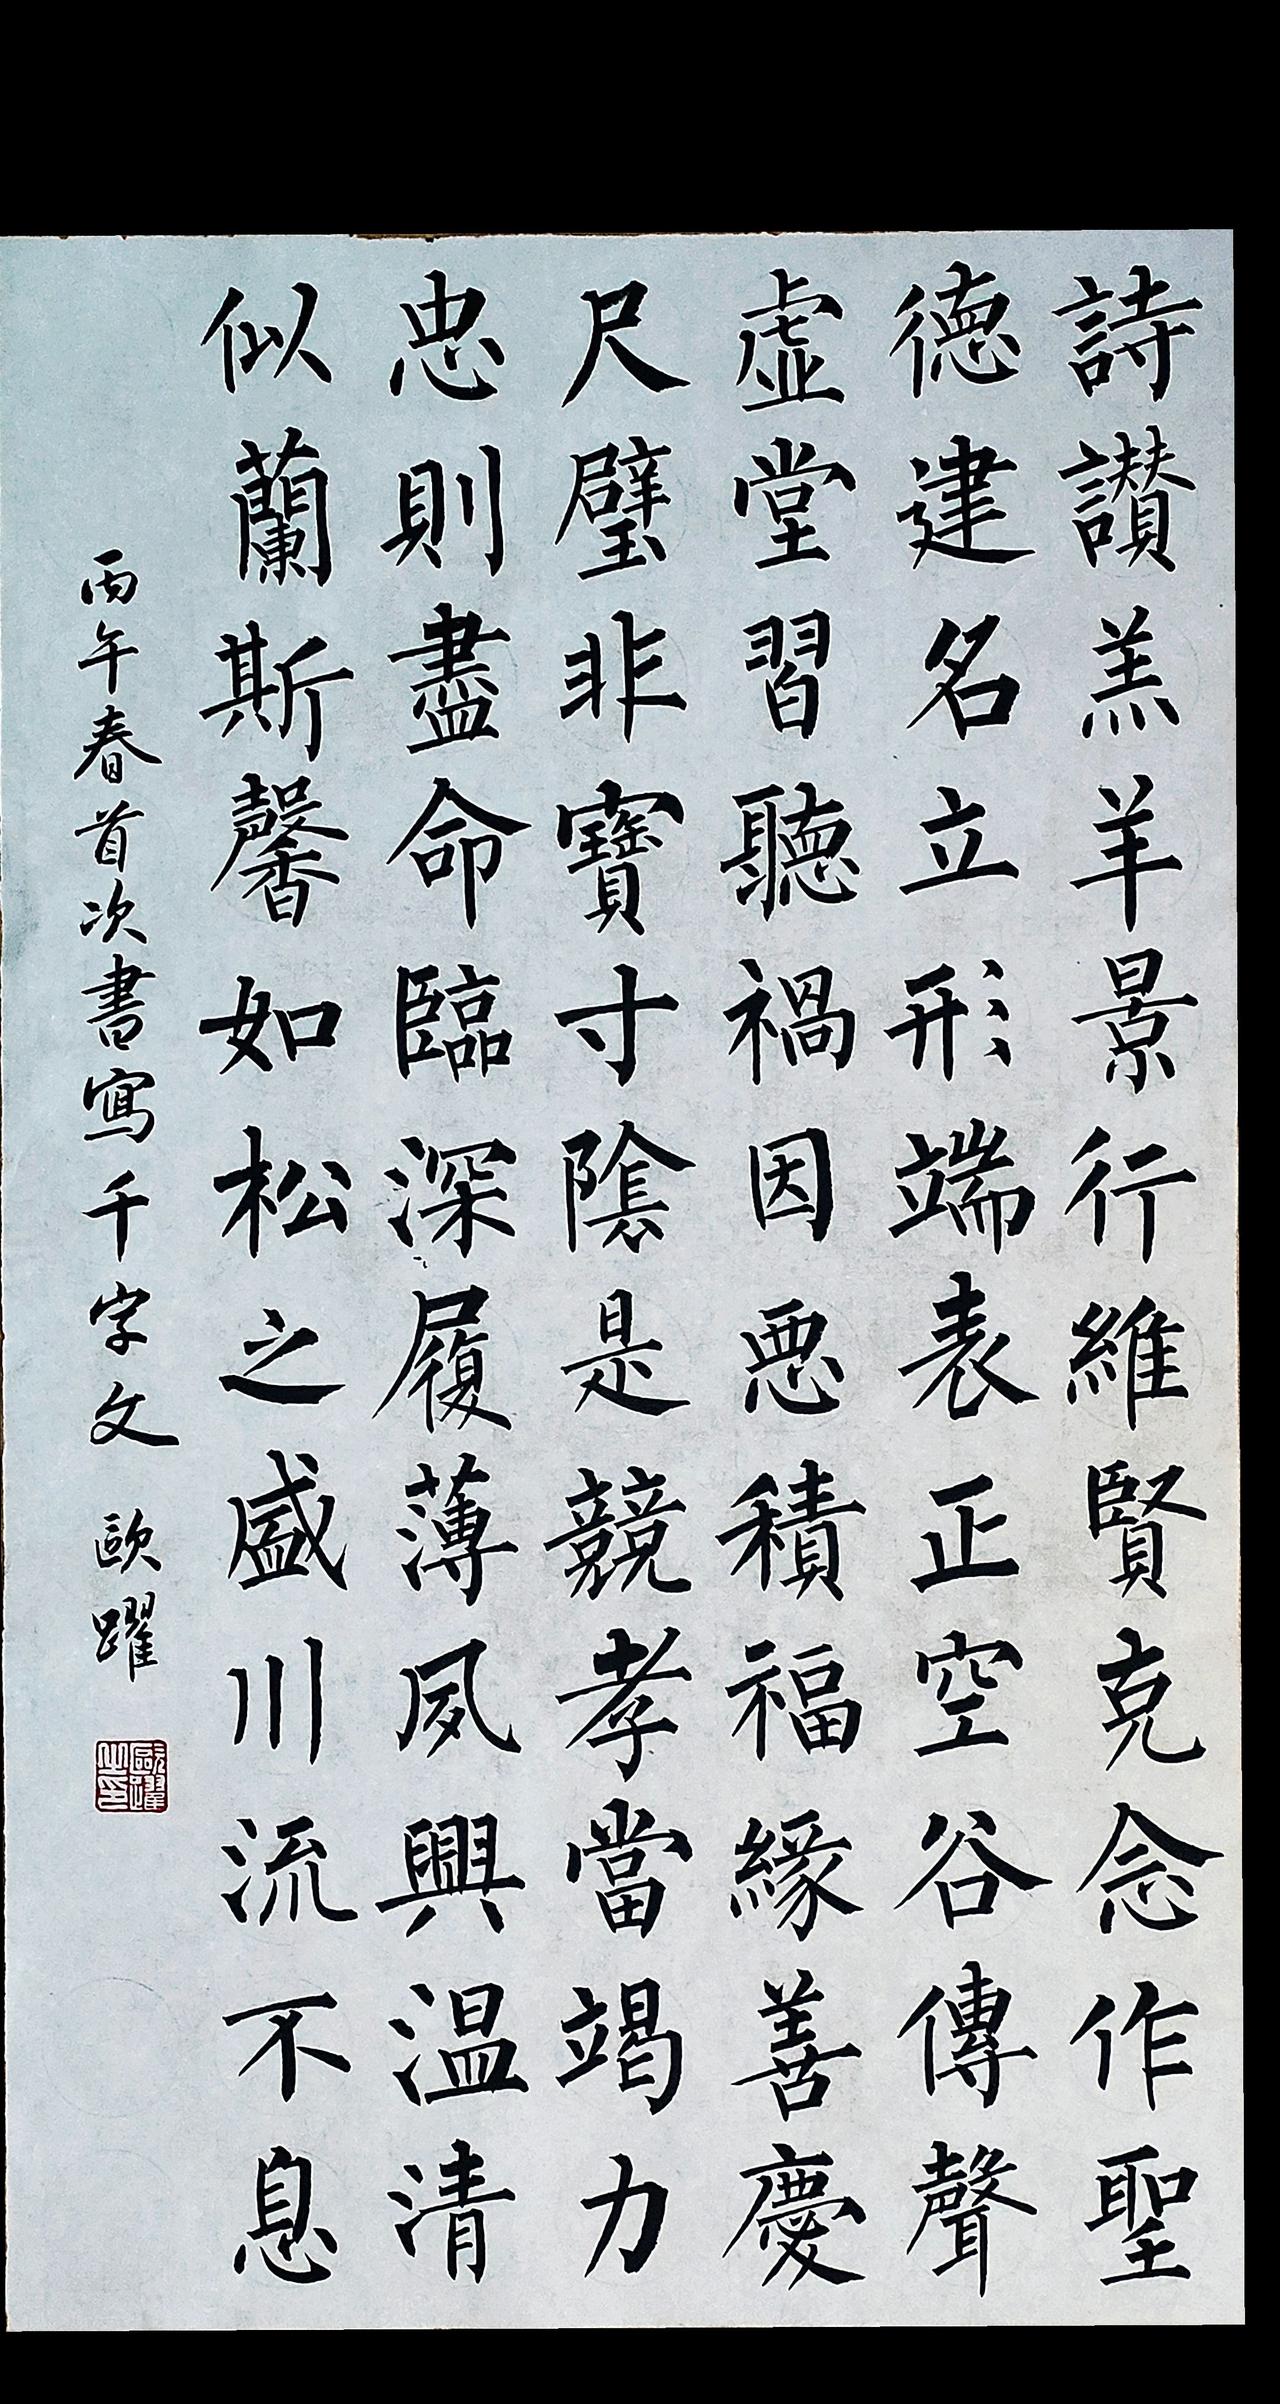 詩讃羔羊景行維賢克念作聖
德建名立形端表正空谷傳聲
虛堂習聽禍因惡積福緣善慶
尺璧非寶寸陰是競孝當竭力
忠則盡命臨深履薄夙興温清
似蘭斯馨如松之盛川流不息
丙午春首次書寫千字文 歐躍
歐躍之印